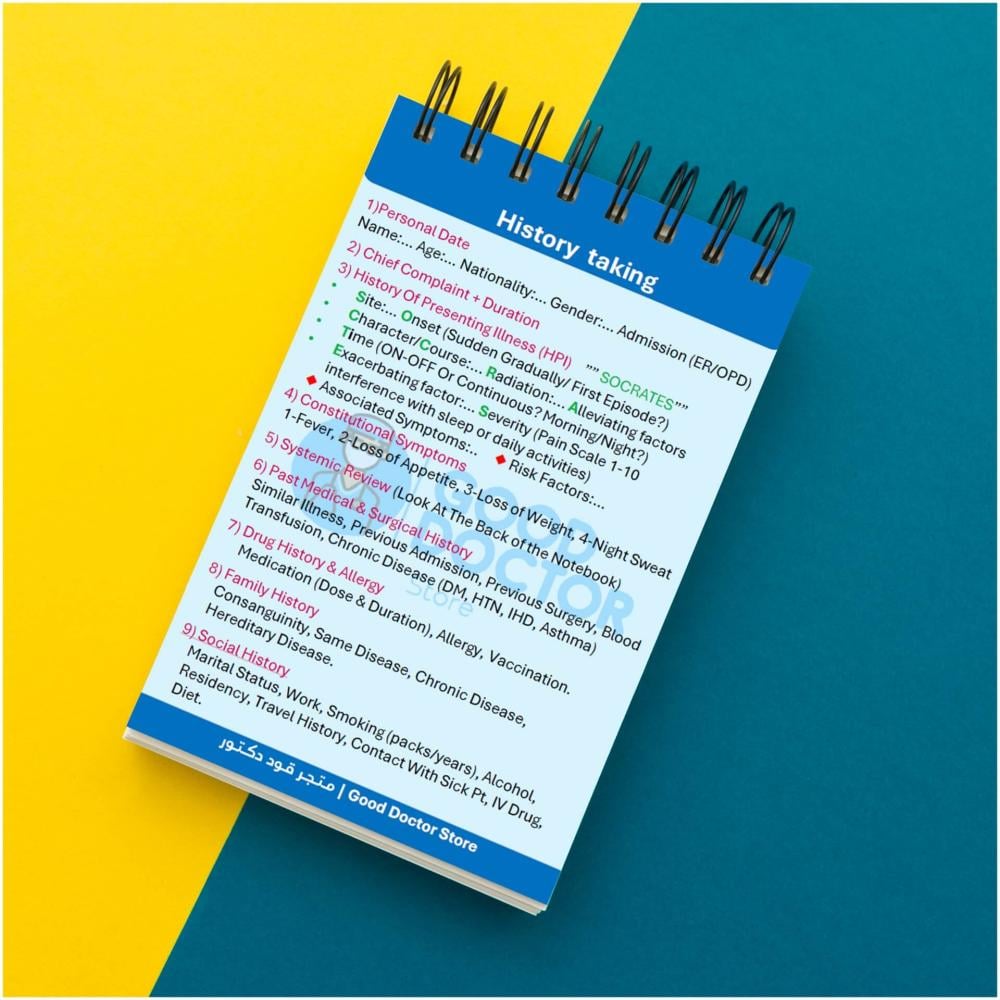 History taking
1)Personal Date
Name:... Age:... Nationality:... Gender:... Admission (ER/OPD)
2) Chief Complaint + Duration
3) History Of Presenting Illness (HPI) "" SOCRATES""
Site:... Onset (Sudden Gradually/ First Episode?)
Character/Course:... Radiation:... Alleviating factors
Time (ON-OFF Or Continuous? Morning/Night?)
Exacerbating factor:... Severity (Pain Scale 1-10
interference with sleep or daily activities)
Associated Symptoms:.. Risk Factors:...
4) Constitutional Symptoms
1-Fever, 2-Loss of Appetite, 3-Loss of Weight, 4-Night Sweat
5) Systemic Review (Look At The Back of the Notebook)
6) Past Medical & Surgical History
Similar Illness, Previous Admission, Previous Surgery, Blood
Transfusion, Chronic Disease (DM, HTN, IHD, Asthma)
7) Drug History & Allergy
Medication (Dose & Duration), Allergy, Vaccination.
8) Family History
Consanguinity, Same Disease, Chronic Disease,
Hereditary Disease.
9) Social History
Marital Status, Work, Smoking (packs/years), Alcohol,
Residency, Travel History, Contact With Sick Pt, IV Drug,
Diet.
GOOD
DOCTOR
Store
متجر قود دكتور | Good Doctor Store